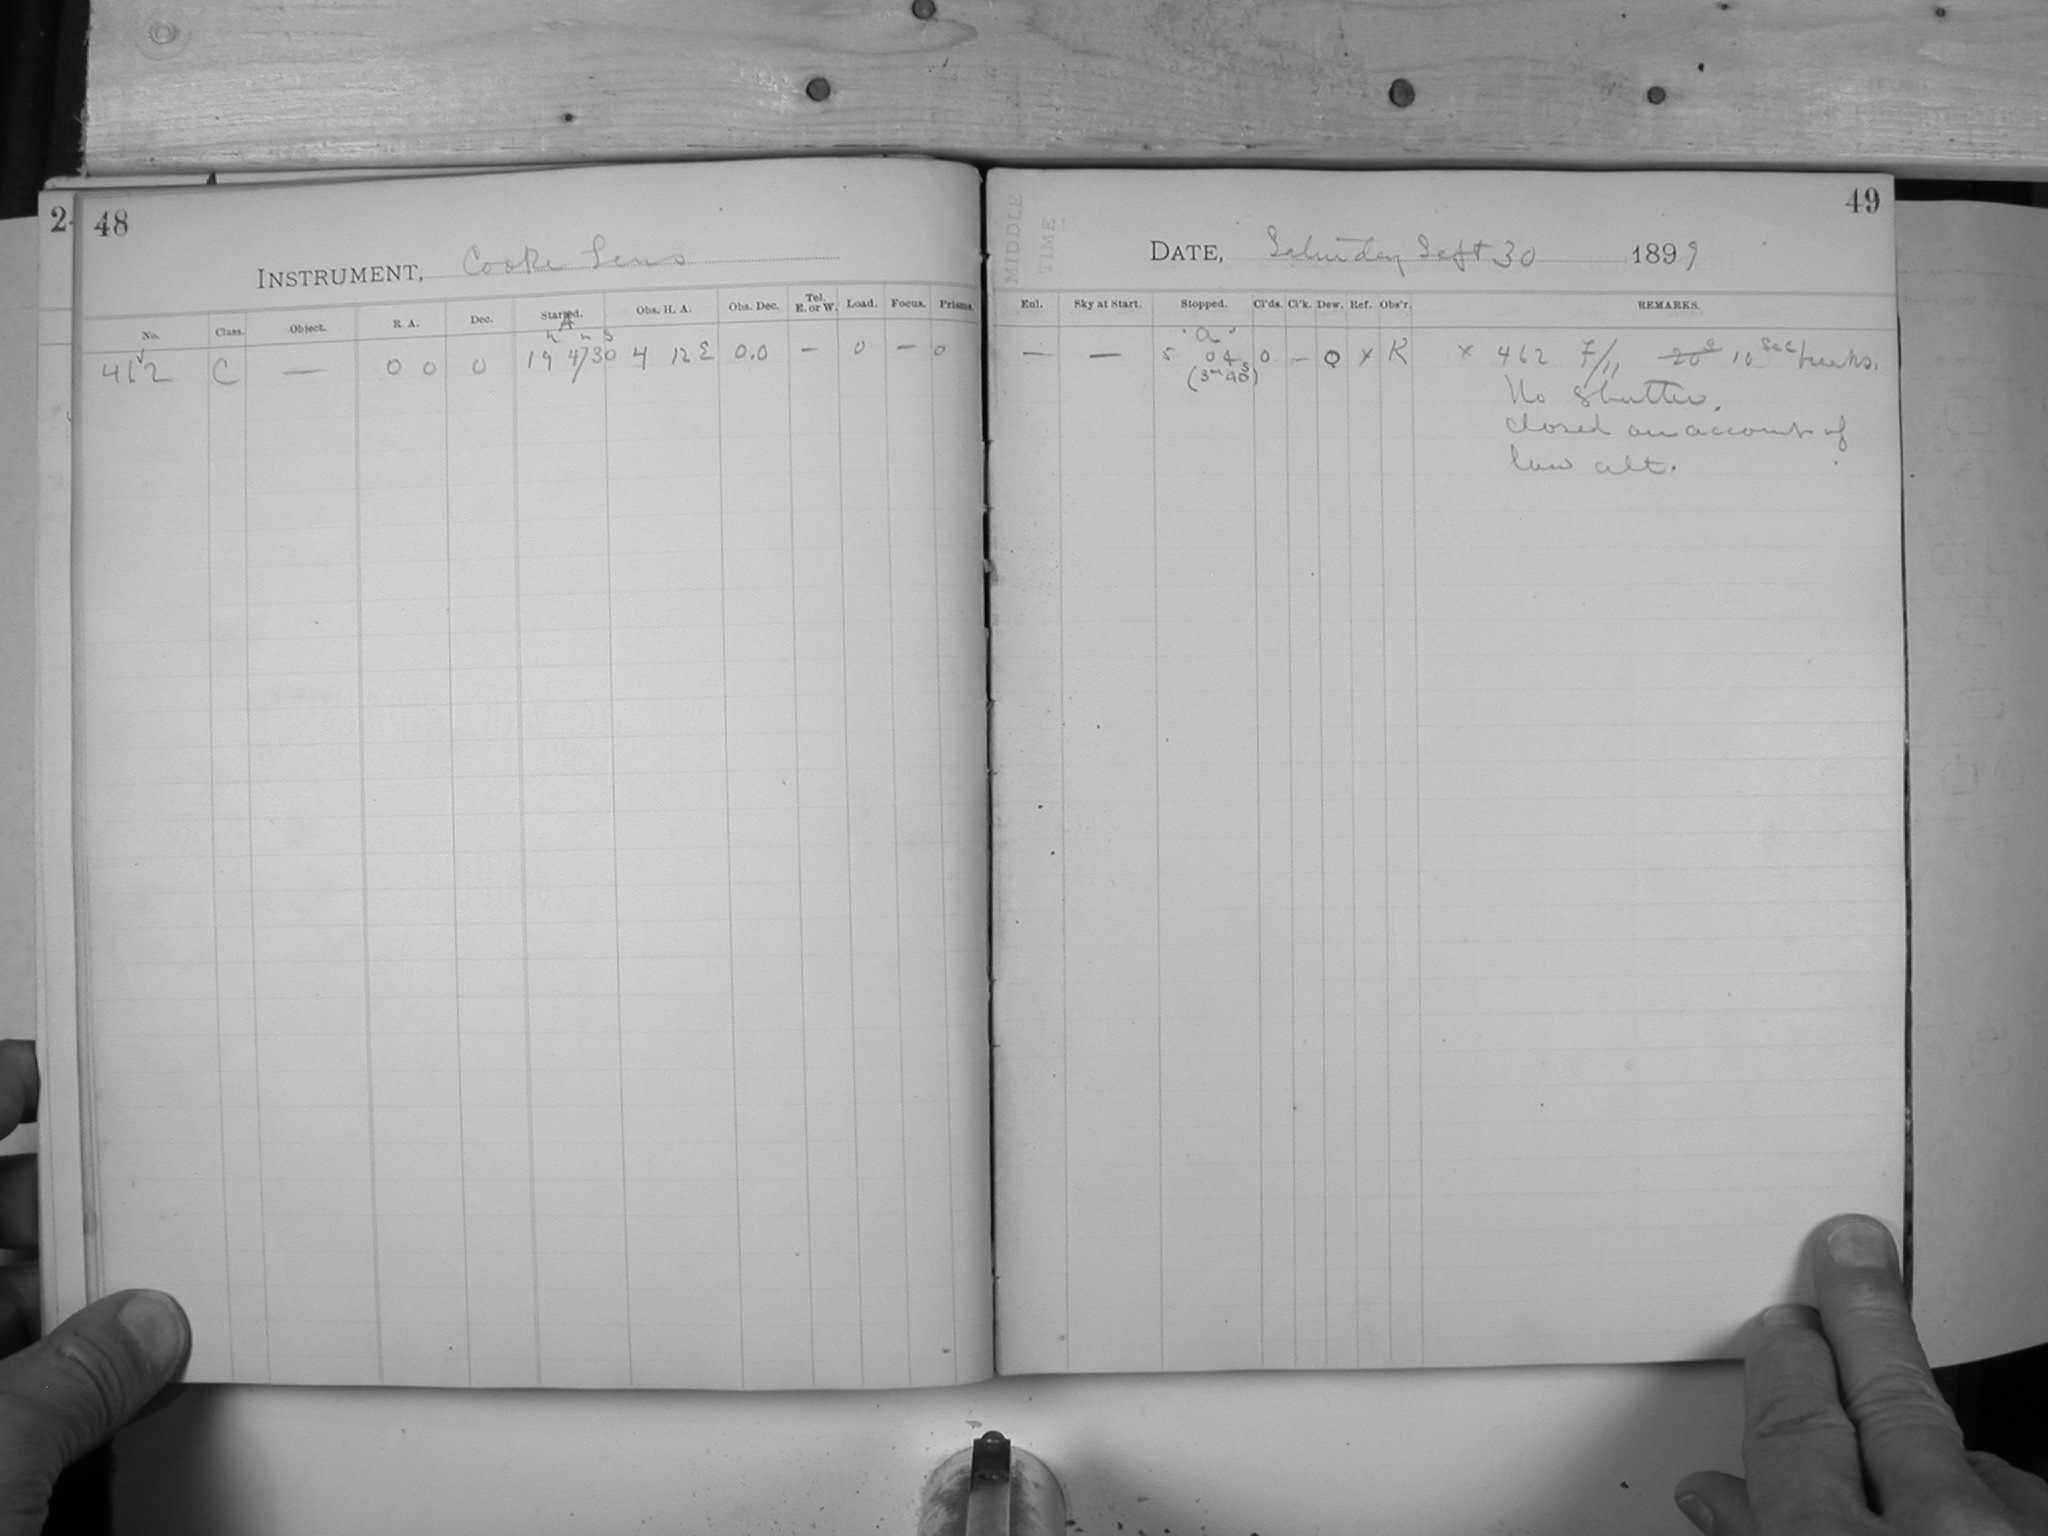 2
48
INSTRUMENT, Cooke Lens
No. Class. Object. R. A. Dec. Started. Obs. H. A. Obs. Dec. Tel. E. or W. Load. Focus. Prisms.
A
h m s
462 C — 0 0 0 19 47 30 4 12 E 0.0 — 0 — 0
MIDDLE
TIME
49
DATE, Saturday Sept 30 1899
Eul. Sky at Start. Stopped. Cl'ds. Cl'k. Dew. Ref. Obs'r. REMARKS.
"a"
— — 5 04 0 — 0 x K x 462 F/11 20s 10 sec breaks.
(3m 40s)
No shutter.
closed on account of
low alt.